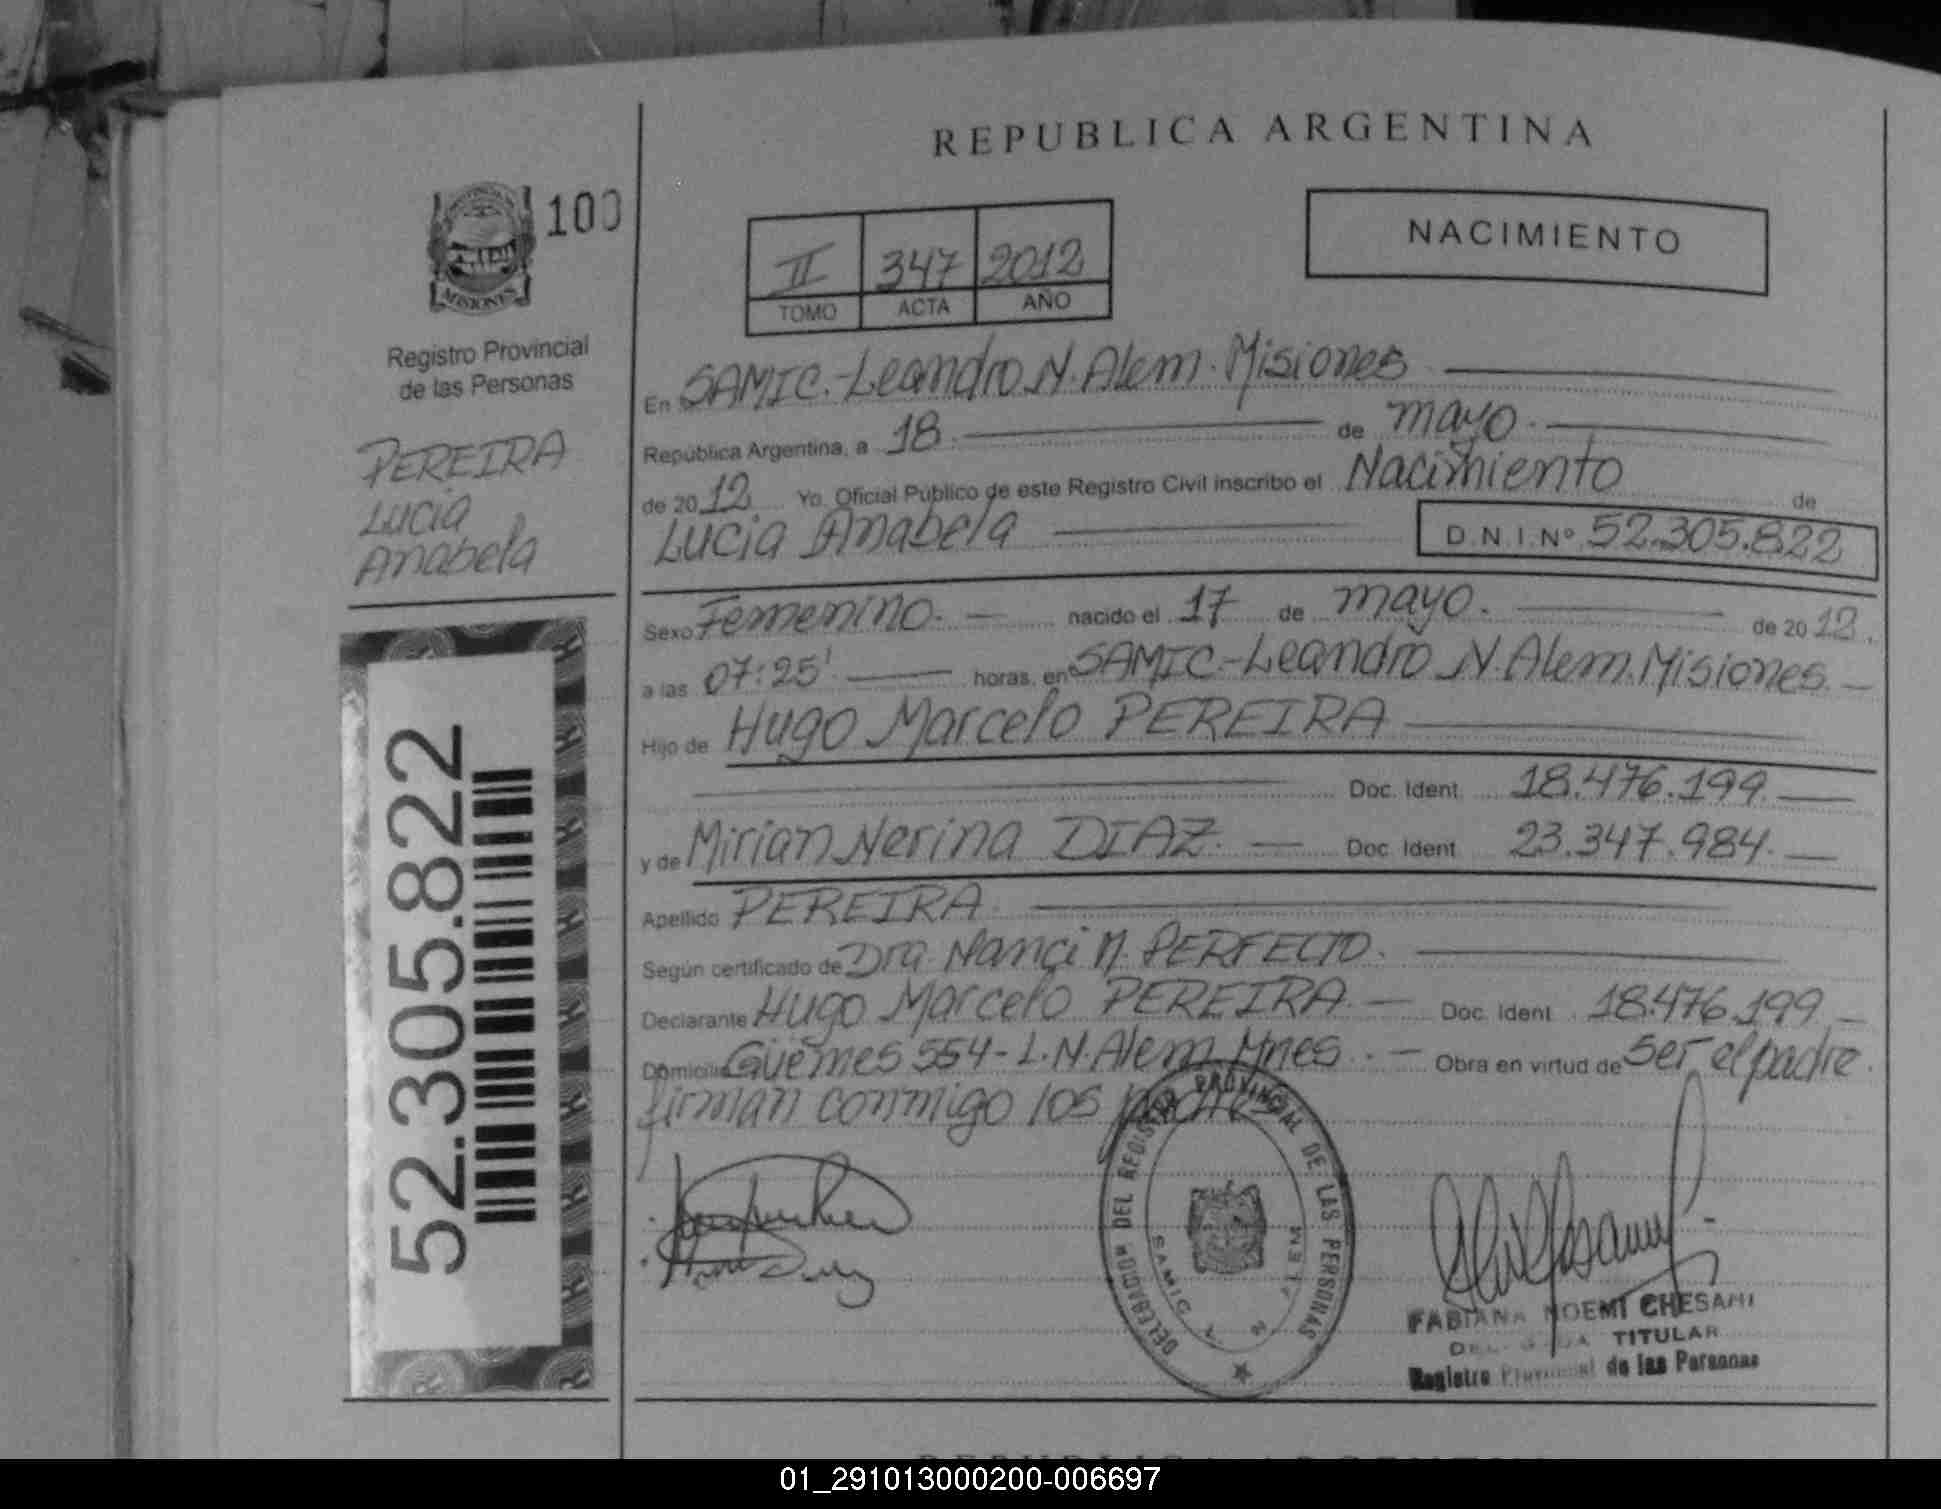 REPUBLICA ARGENTINA
100
MISIONES
Registro Provincial
de las Personas
PEREIRA
Lucia
Anabela
52.305.822
II 347 2012
TOMO ACTA AÑO
NACIMIENTO
En SAMIC.-Leandro N. Alem. Misiones
República Argentina, a 18 de mayo.
de 2012 Yo, Oficial Público de este Registro Civil inscribo el Nacimiento de
Lucia Anabela D.N.I.Nº 52.305.822
Sexo Femenino. nacido el 17 de mayo. de 2012.
a las 07:25' horas, en SAMIC.-Leandro N. Alem. Misiones.
Hijo de Hugo Marcelo PEREIRA
Doc. Ident. 18.476.199
y de Mirian Nerina DIAZ. Doc. Ident. 23.347.984.
Apellido PEREIRA
Según certificado de Dra. Nanci N. PERFECTO.
Declarante Hugo Marcelo PEREIRA. Doc. Ident. 18.476.199
Domicilio Güemes 554- L.N. Alem. Mnes. Obra en virtud de Ser el padre.
firman conmigo los padres
DELEGACION DEL REGISTRO PROVINCIAL DE LAS PERSONAS
SAMIC L N ALEM
FABIANA NOEMI CHESANI
DELEGADA TITULAR
Registro Provincial de las Personas
01_291013000200-006697